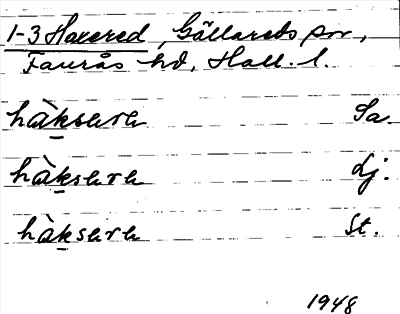 1-3 Haxered, Gällareds sn,
Faurås hd, Hall. l.
hàksara Sa.
hàksara Lj.
hàksara St.
1948